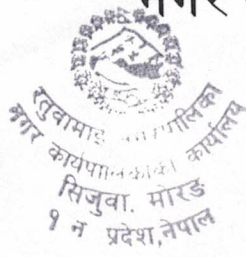 नगर
रतुवामाई नगरपालिका
नगर कार्यपालिकाको कार्यालय
सिजुवा, मोरङ
१ नं प्रदेश, नेपाल